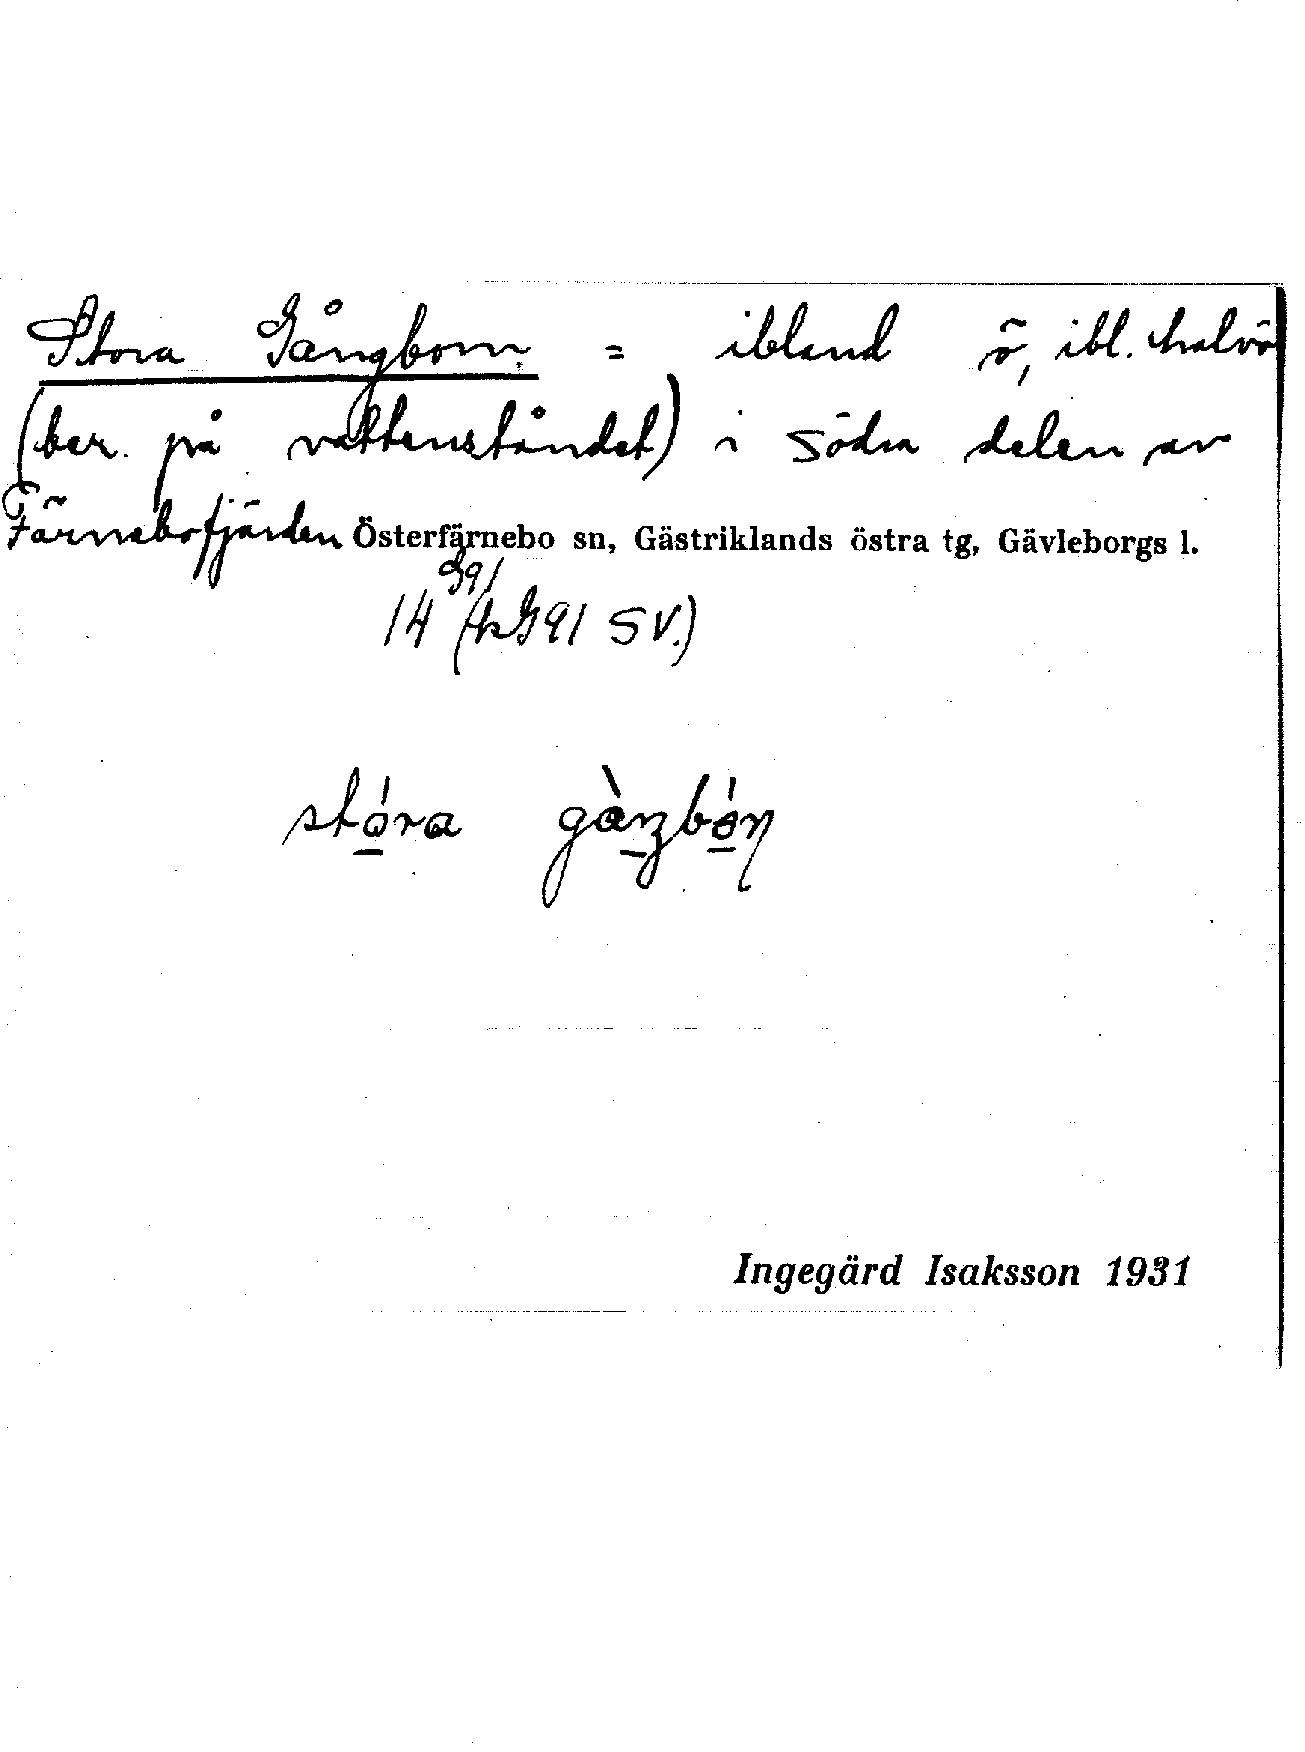 Stora Gångborn = ibland ö, ibl. halvö
(ber. på vattenståndet) i södra delen av
Färnebofjärden Österfärnebo sn, Gästriklands östra tg, Gävleborgs l.
G91
14 (k G91 SV.)
stóra
Ingegärd Isaksson 1931